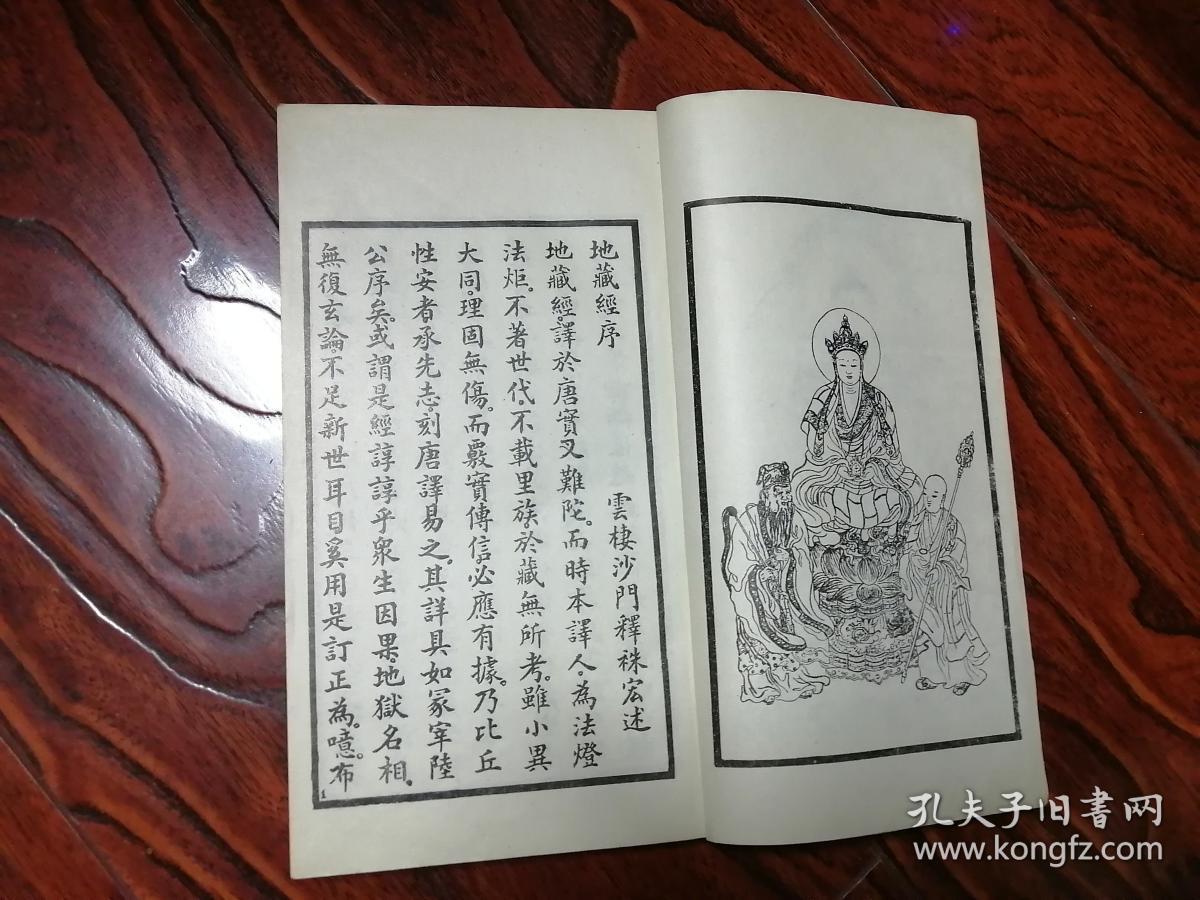 地藏經序
雲棲沙門釋袾宏述
地藏經。譯於唐實叉難陀。而時本譯人。為法燈
法炬。不著世代。不載里族。於藏無所考。雖小異
大同。理固無傷。而覈實傳信。必應有據。乃比丘
性安者承先志。刻唐譯易之。其詳具如冢宰陸
公序矣。或謂是經諄諄乎眾生因果。地獄名相。
無復玄論。不足新世耳目。奚用是訂正為。噫。布
1
孔夫子旧書网
www.kongfz.com